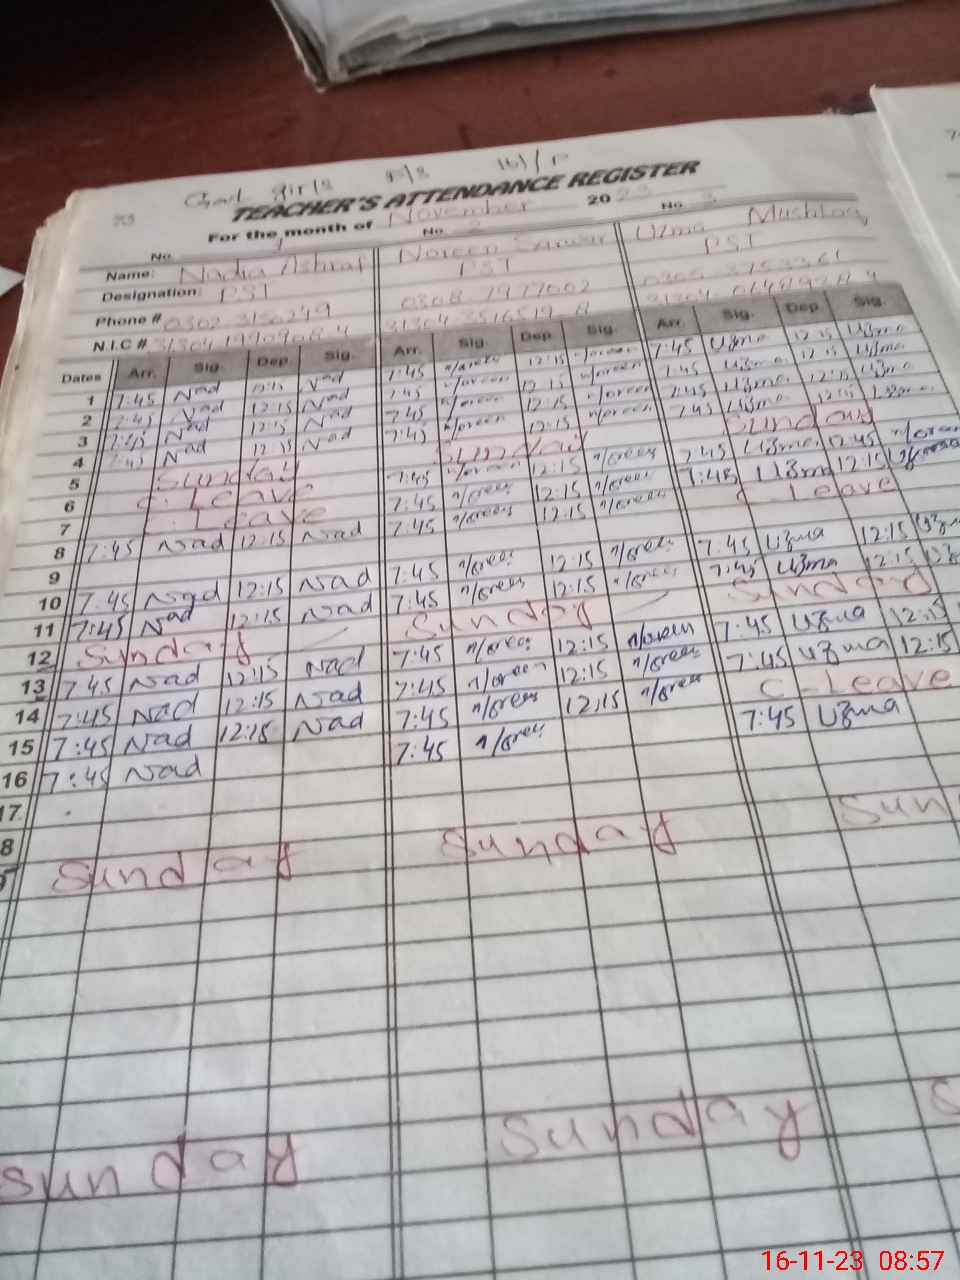 73 Govt girls P/s
TEACHER'S ATTENDANCE REGISTER
For the month of November 2023
No. 1 No. 2 No. 3
Name: Nadia Ashraf Noreen Sarwar Uzma Mushtaq
Designation: PST PST PST
Phone #
N.I.C #
Dates Arr. Sig. Dep. Sig. Arr. Sig. Dep. Sig. Arr. Sig. Dep. Sig.
1 7:45 Nad 12:15 Nad 7:45 noreen 12:15 noreen 7:45 Uzma 12:15 Uzma
2 7:45 Nad 12:15 Nad 7:45 noreen 12:15 noreen 7:45 Uzma 12:15 Uzma
3 7:45 Nad 12:15 Nad 7:45 noreen 12:15 noreen 7:45 Uzma 12:15 Uzma
4 7:45 Nad 12:15 Nad 7:45 noreen 12:15 noreen 7:45 Uzma 12:15 Uzma
5 Sunday Sunday Sunday
6 C. Leave 7:45 noreen 12:15 noreen 7:45 Uzma 12:45 noreen
7 C. Leave 7:45 noreen 12:15 noreen 7:45 Uzma 12:15
8 7:45 Nad 12:15 Nad 7:45 noreen 12:15 noreen C Leave
9
10 7:45 Nad 12:15 Nad 7:45 noreen 12:15 noreen 7:45 Uzma 12:15
11 7:45 Nad 12:15 Nad 7:45 noreen 12:15 noreen 7:45 Uzma 12:15
12 Sunday Sunday Sunday
13 7:45 Nad 12:15 Nad 7:45 noreen 12:15 noreen 7:45 Uzma 12:15
14 7:45 Nad 12:15 Nad 7:45 noreen 12:15 noreen 7:45 Uzma 12:15
15 7:45 Nad 12:15 Nad 7:45 noreen 12:15 noreen C-Leave
16 7:45 Nad 7:45 noreen 7:45 Uzma
17
8
Sunday Sunday Sun
Sunday Sunday S
16-11-23 08:57